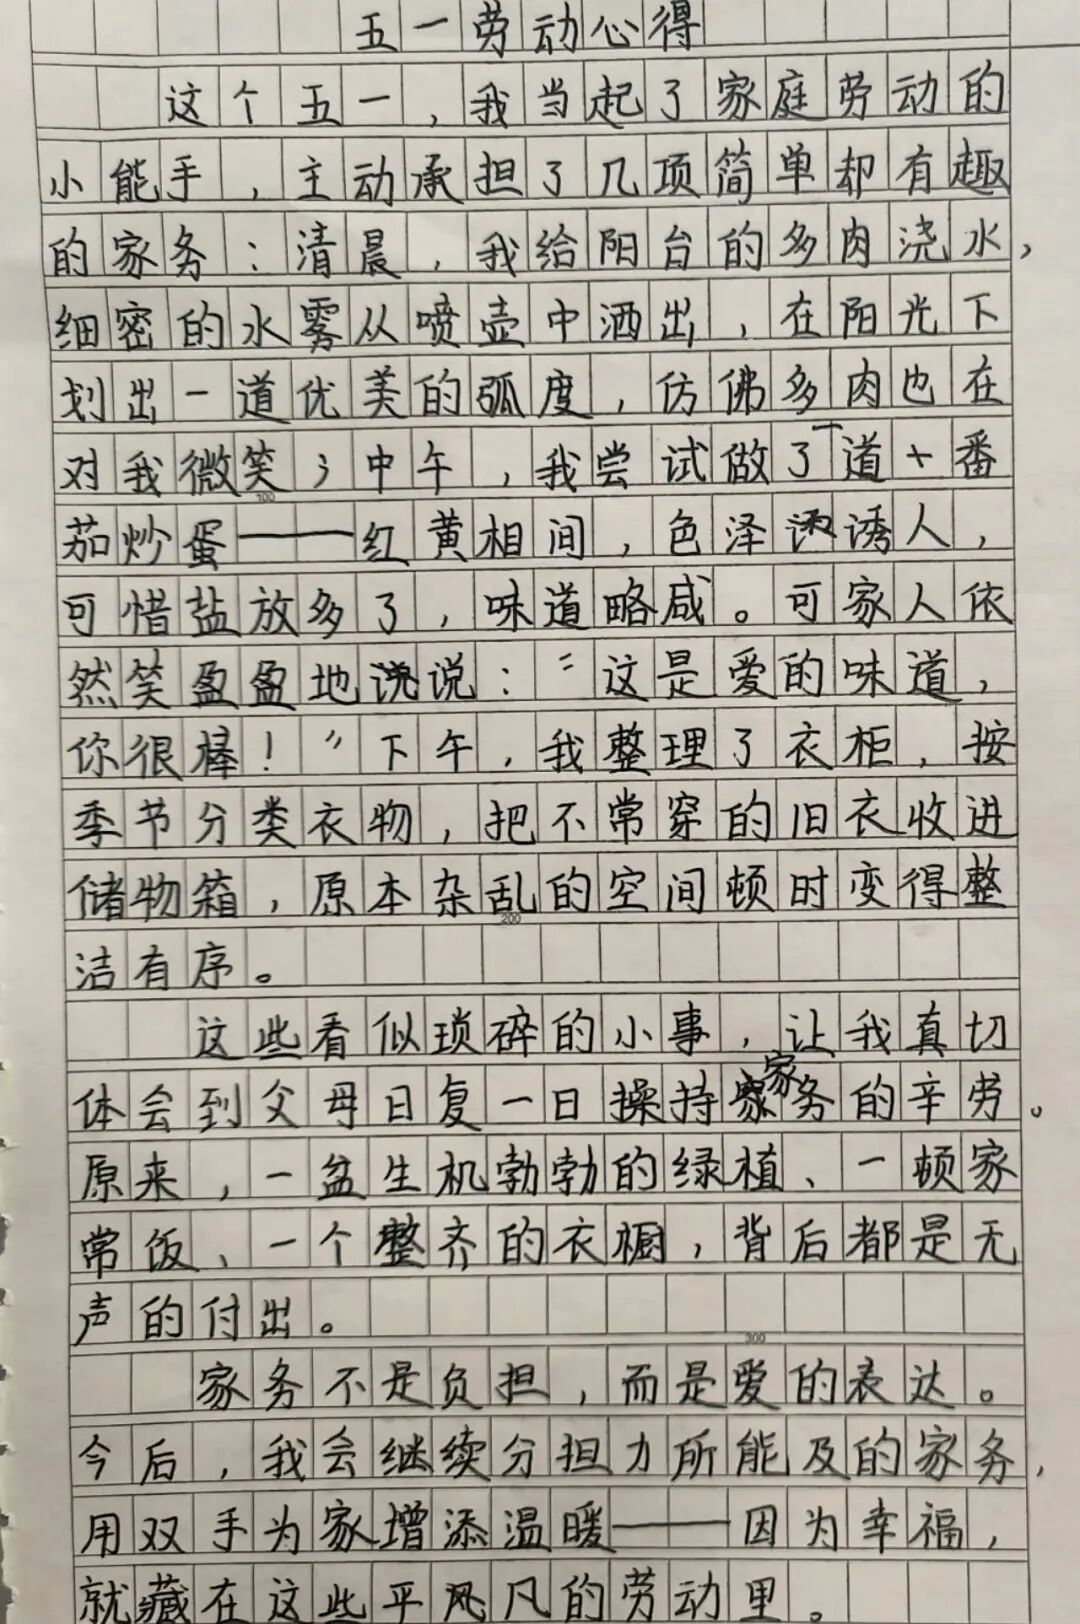 五一劳动心得
这个五一,我当起了家庭劳动的
小能手,主动承担了几项简单却有趣
的家务:清晨,我给阳台的多肉浇水,
细密的水雾从喷壶中洒出,在阳光下
划出一道优美的弧度,仿佛多肉也在
对我微笑;中午,我尝试做了一道十番
100
茄炒蛋——红黄相间,色泽诱人,
可惜盐放多了,味道略咸。可家人依
然笑盈盈地说:“这是爱的味道,
你很棒!”下午,我整理了衣柜,按
季节分类衣物,把不常穿的旧衣收进
储物箱,原本杂乱的空间顿时变得整
200
洁有序。
这些看似琐碎的小事,让我真切
体会到父母日复一日操持家务的辛劳。
原来,一盆生机勃勃的绿植、一顿家
常饭、一个整齐的衣橱,背后都是无
声的付出。
300
家务不是负担,而是爱的表达。
今后,我会继续分担力所能及的家务,
用双手为家增添温暖——因为幸福,
就藏在这些平凡的劳动里。